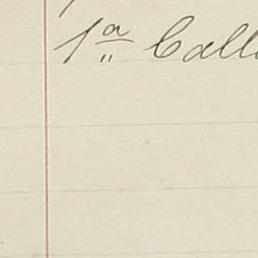 1ª Call